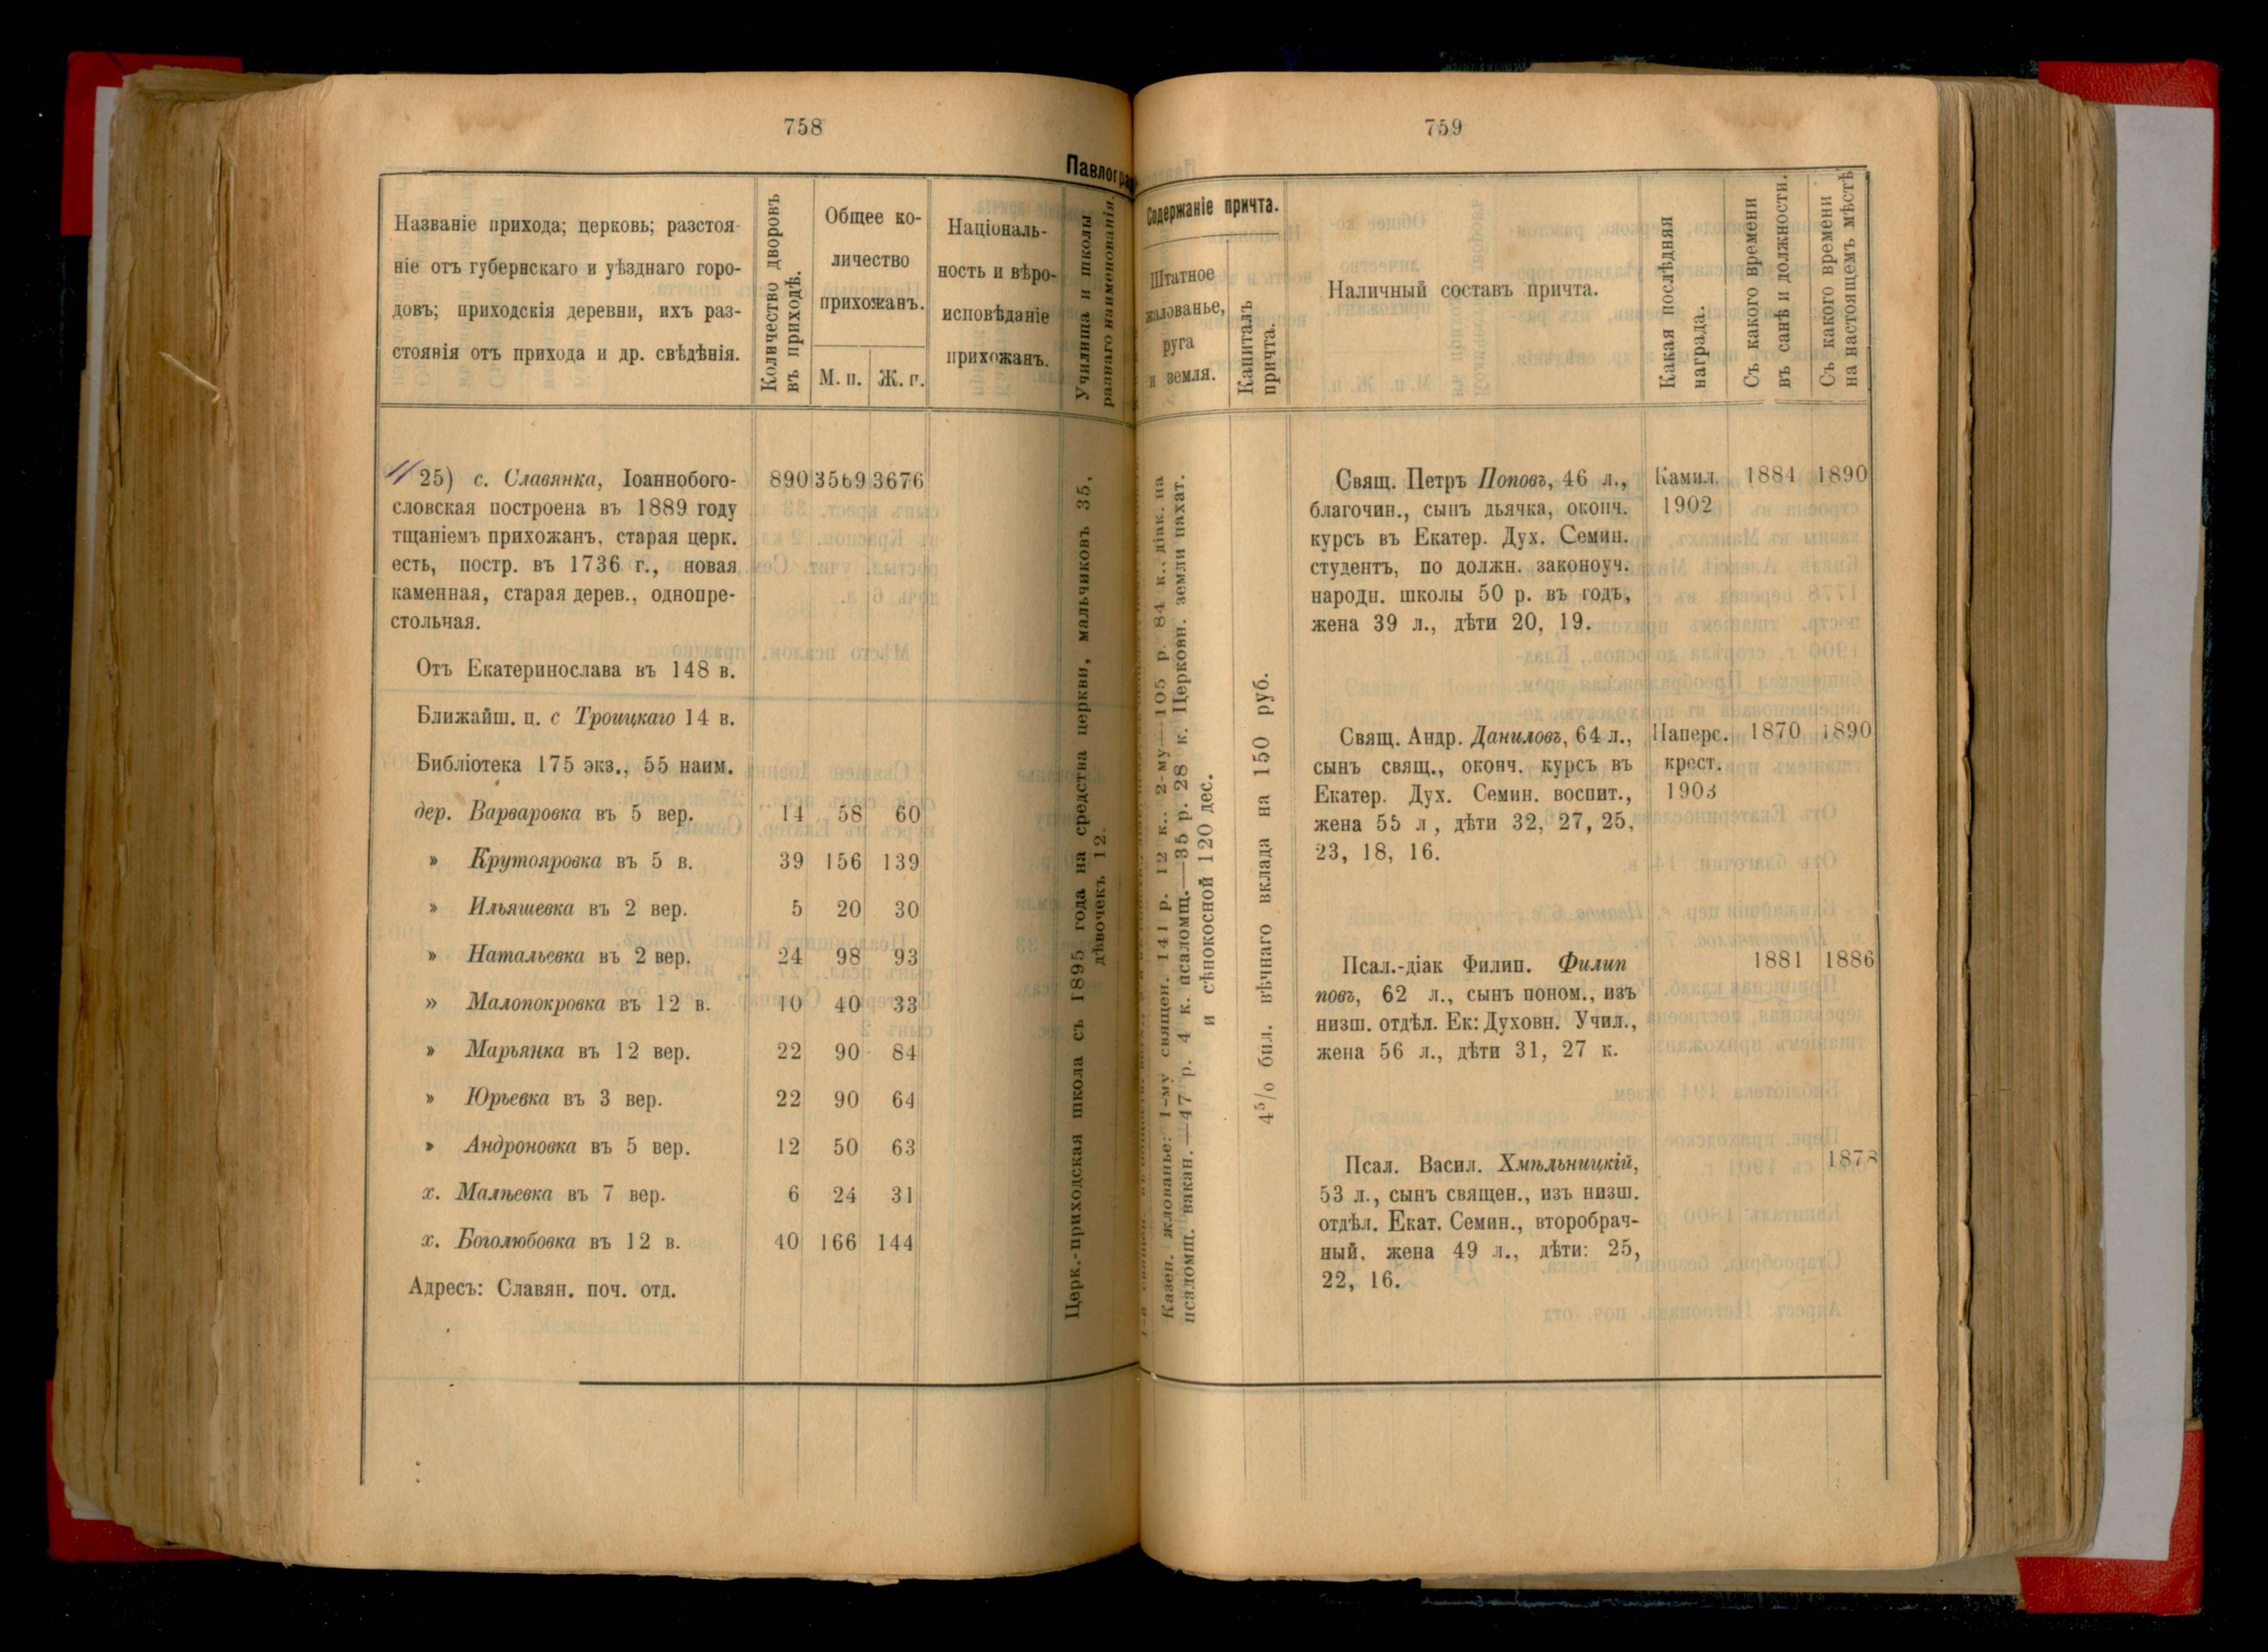 758
Павлогра
Названіе прихода; церковь; разстоя-
ніе отъ губернскаго и уѣзднаго горо-
довъ; приходскія деревни, ихъ раз-
стоянія отъ прихода и др. свѣдѣнія.
Количество дворовъ
въ приходѣ.
Общее ко-
личество
прихожанъ.
М. п. Ж. п.
Націоналъ-
ность и вѣро-
исповѣданіе
прихожанъ.
Училища и школы
разнаго наименованія.
25) с. Славянка, Іоаннобого- 890 3569 3676
словская построена въ 1889 году
тщаніемъ прихожанъ, старая церк.
есть, постр. въ 1736 г., новая
каменная, старая дерев., однопре-
стольная.
Отъ Екатеринослава въ 148 в.
Ближайш. ц. с Троицкаго 14 в.
Библіотека 175 экз., 55 наим.
дер. Варваровка въ 5 вер. 14 58 60
» Крутояровка въ 5 в. 39 156 139
» Ильяшевка въ 2 вер. 5 20 30
» Натальевка въ 2 вер. 24 98 93
» Малопокровка въ 12 в. 10 40 33
» Марьянка въ 12 вер. 22 90 84
» Юрьевка въ 3 вер. 22 90 64
» Андроновка въ 5 вер. 12 50 63
х. Малѣевка въ 7 вер. 6 24 31
х. Боголюбовка въ 12 в. 40 166 144
Адресъ: Славян. поч. отд.
Церк.-приходская школа съ 1895 года на средства церкви, мальчиковъ 35,
дѣвочекъ 12.
759
Содержаніе причта.
Штатное
жалованье,
руга
и земля.
Капиталъ
причта.
Наличный составъ причта.
Какая послѣдняя
награда.
Съ какого времени
въ санѣ и должности.
Съ какого времени
на настоящемъ мѣстѣ
Казен. жлованье: 1-му священ. 141 р. 12 к., 2-му—105 р. 84 к., діак. на
псаломщ. вакан.—47 р. 4 к. псаломщ.—35 р. 28 к. Церковн. земли пахат.
и сѣнокосной 120 дес.
4⁵/₀ бил. вѣчнаго вклада на 150 руб.
Свящ. Петръ Поповъ, 46 л., Камил. 1884 1890
благочин., сынъ дьячка, оконч. 1902
курсъ въ Екатер. Дух. Семин.
студентъ, по должн. законоуч.
народн. школы 50 р. въ годъ,
жена 39 л., дѣти 20, 19.
Свящ. Андр. Даниловъ, 64 л., Наперс. 1870 1890
сынъ свящ., оконч. курсъ въ крест.
Екатер. Дух. Семин. воспит., 1903
жена 55 л , дѣти 32, 27, 25,
23, 18, 16.
Псал.-діак Филип. Филип 1881 1886
повъ, 62 л., сынъ поном., изъ
низш. отдѣл. Ек: Духовн. Учил.,
жена 56 л., дѣти 31, 27 к.
Псал. Васил. Хмѣльницкій, 1878
53 л., сынъ священ., изъ низш.
отдѣл. Екат. Семин., второбрач-
ный, жена 49 л., дѣти: 25,
22, 16.